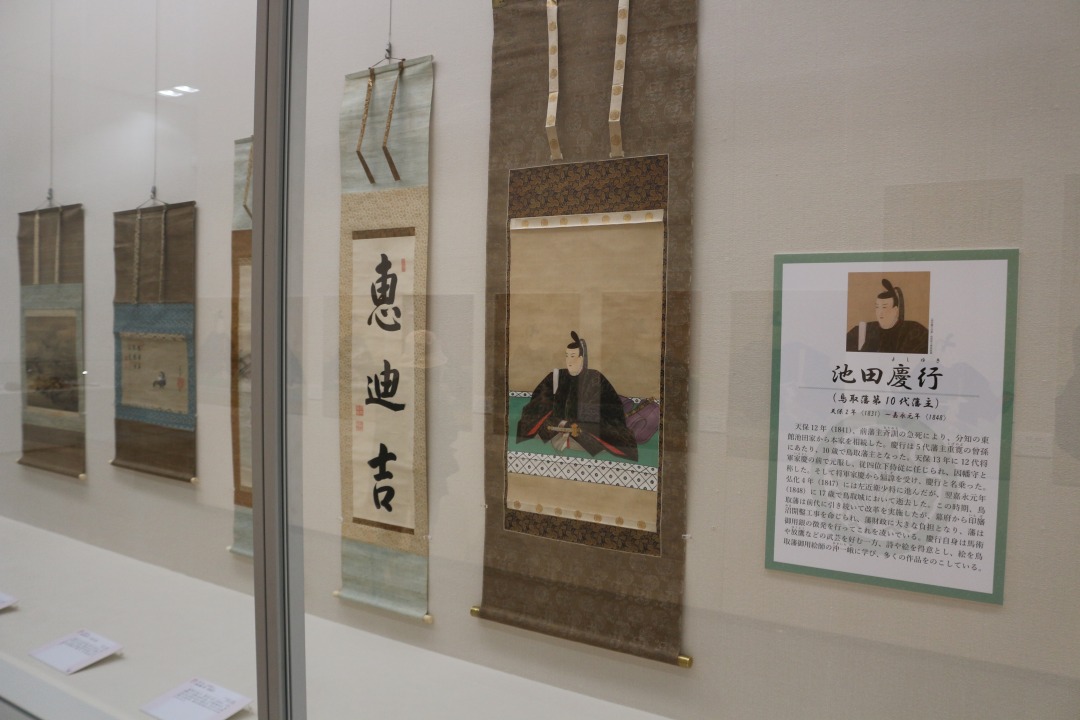 恵迪吉
よしゆき
池田慶行
(鳥取藩第10代藩主)
天保2年（1831）－嘉永元年（1848）
天保12年（1841）、前藩主斉訓の急死により、分知の東
館池田家から本家を相続した。慶行は5代藩主重寛の曾孫
にあたり、10歳で鳥取藩主となった。天保13年に12代将
軍家慶の前で元服し、従四位下侍従に任じられ、因幡守と
称した。そして将軍家慶から偏諱を受け、慶行と名乗った。
弘化4年（1847）には左近衛少将に進んだが、翌嘉永元年
（1848）に17歳で鳥取城において逝去した。この時期、鳥
取藩は前代に引き続いて改革を実施したが、幕府から印旛
沼開鑿工事を命じられ、藩財政に大きな負担となり、藩は
御用銀の徴発を行ってこれを凌いでいる。慶行自身は馬術
や放鷹などの武芸を好む一方、詩や絵を得意とし、絵を鳥
取藩御用絵師の沖一峨に学び、多くの作品をのこしている。